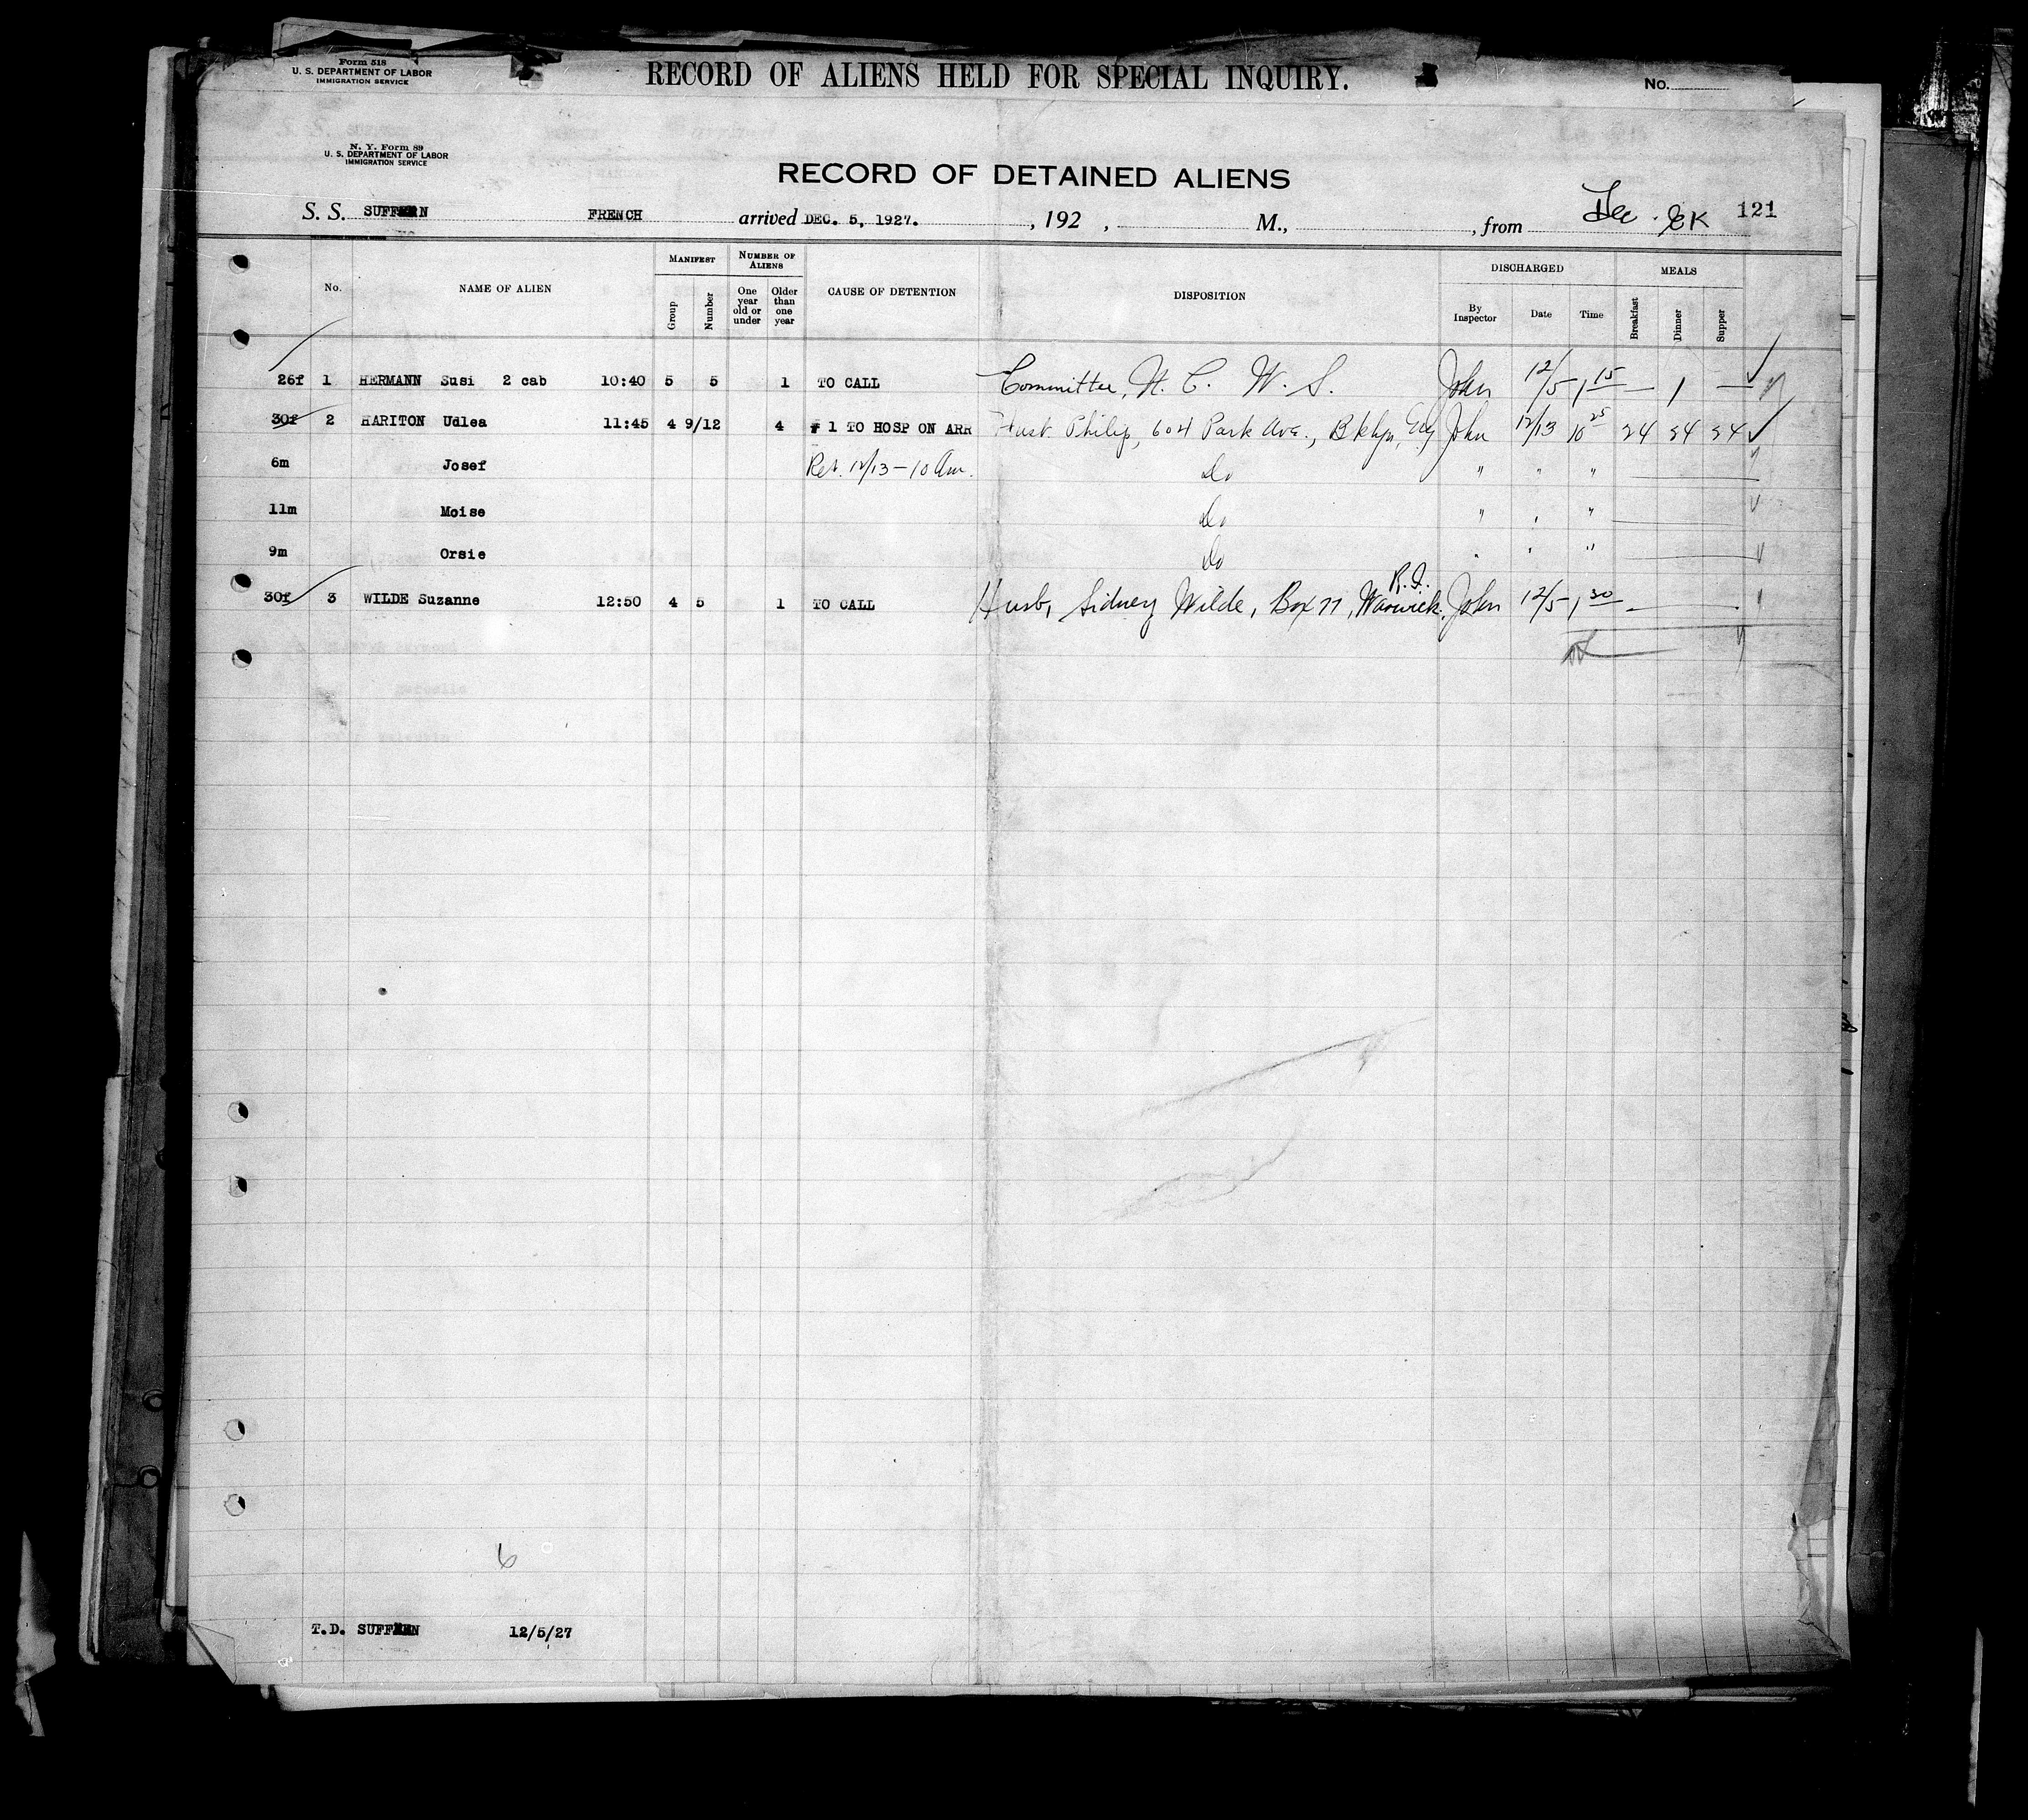 Form 518
U. S. DEPARTMENT OF LABOR
IMMIGRATION SERVICE
RECORD OF ALIENS HELD FOR SPECIAL INQUIRY.
No.
N. Y. Form 89
U. S. DEPARTMENT OF LABOR
IMMIGRATION SERVICE
RECORD OF DETAINED ALIENS
S. S. SUFFREN FRENCH arrived DEC. 5, 1927. , 192 , M., , from Dec. 121
No. NAME OF ALIEN MANIFEST Group Number NUMBER OF ALIENS One year old or under Older than one year CAUSE OF DETENTION DISPOSITION DISCHARGED By Inspector Date Time MEALS Breakfast Dinner Supper
26f 1 HERMANN Susi 2 cab 10:40 5 5 1 TO CALL Committee, N. C. W. S. John 12/5 1 15 — 1 —
30f 2 HARITON Udlea 11:45 4 9/12 4 # 1 TO HOSP ON ARR Husb Philip, 604 Park Ave., Bklyn, John 12/13 10 25 24 24 24
6m Josef Rel. 12/13 - 10 Am. Do " " "
11m Moise Do " " "
9m Orsie Do " " "
30f 3 WILDE Suzanne 12:50 4 5 1 TO CALL Husb, Sidney Wilde, Box 77, Warwick, R.I. John 12/5 1 30
6
T.D. SUFFREN 12/5/27